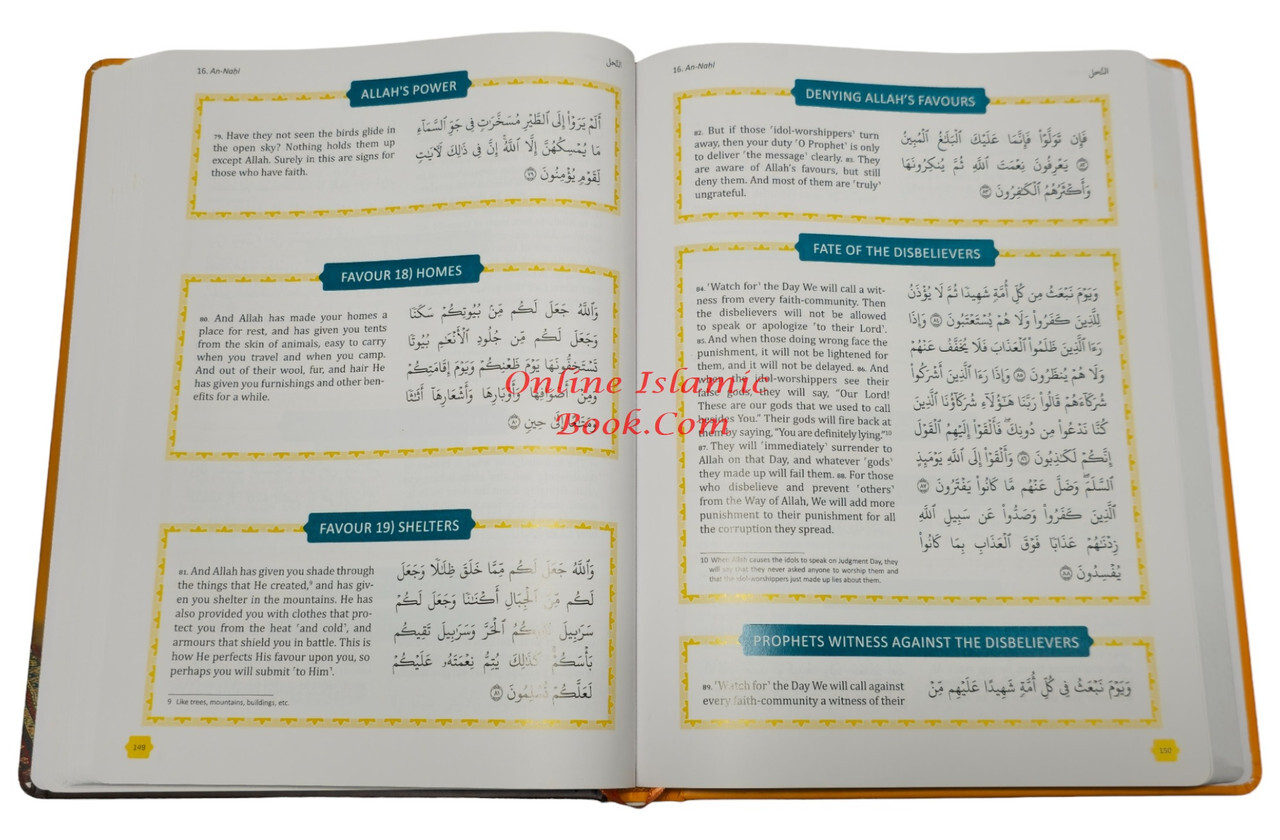 16. An-Naḥl
النحل
ALLAH'S POWER
79. Have they not seen the birds glide in
the open sky? Nothing holds them up
except Allah. Surely in this are signs for
those who have faith.
أَلَمْ يَرَوْا۟ إِلَى ٱلطَّيْرِ مُسَخَّرَٰتٍ فِى جَوِّ ٱلسَّمَآءِ
مَا يُمْسِكُهُنَّ إِلَّا ٱللَّهُ إِنَّ فِى ذَٰلِكَ لَـَٔايَٰتٍ
لِّقَوْمٍ يُؤْمِنُونَ ٧٩
FAVOUR 18) HOMES
80. And Allah has made your homes a
place for rest, and has given you tents
from the skin of animals, easy to carry
when you travel and when you camp.
And out of their wool, fur, and hair He
has given you furnishings and other ben-
efits for a while.
وَٱللَّهُ جَعَلَ لَكُم مِّنۢ بُيُوتِكُمْ سَكَنًا
وَجَعَلَ لَكُم مِّن جُلُودِ ٱلْأَنْعَٰمِ بُيُوتًا
تَسْتَخِفُّونَهَا يَوْمَ ظَعْنِكُمْ وَيَوْمَ إِقَامَتِكُمْ
وَمِنْ أَصْوَافِهَا وَأَوْبَارِهَا وَأَشْعَارِهَآ أَثَٰثًا
وَمَتَٰعًا إِلَىٰ حِينٍ ٨٠
FAVOUR 19) SHELTERS
81. And Allah has given you shade through
the things that He created,⁹ and has giv-
en you shelter in the mountains. He has
also provided you with clothes that pro-
tect you from the heat ˹and cold˺, and
armours that shield you in battle. This is
how He perfects His favour upon you, so
perhaps you will submit ˹to Him˺.
وَٱللَّهُ جَعَلَ لَكُم مِّمَّا خَلَقَ ظِلَٰلًا وَجَعَلَ
لَكُم مِّنَ ٱلْجِبَالِ أَكْنَٰنًا وَجَعَلَ لَكُمْ
سَرَٰبِيلَ تَقِيكُمُ ٱلْحَرَّ وَسَرَٰبِيلَ تَقِيكُم
بَأْسَكُمْ كَذَٰلِكَ يُتِمُّ نِعْمَتَهُۥ عَلَيْكُمْ
لَعَلَّكُمْ تُسْلِمُونَ ٨١
9 Like trees, mountains, buildings, etc.
149
16. An-Naḥl
النحل
DENYING ALLAH'S FAVOURS
82. But if those ˹idol-worshippers˺ turn
away, then your duty ˹O Prophet˺ is only
to deliver ˹the message˺ clearly. 83. They
are aware of Allah's favours, but still
deny them. And most of them are ˹truly˺
ungrateful.
فَإِن تَوَلَّوْا۟ فَإِنَّمَا عَلَيْكَ ٱلْبَلَٰغُ ٱلْمُبِينُ
٨٢ يَعْرِفُونَ نِعْمَتَ ٱللَّهِ ثُمَّ يُنكِرُونَهَا
وَأَكْثَرُهُمُ ٱلْكَٰفِرُونَ ٨٣
FATE OF THE DISBELIEVERS
84. ˹Watch for˺ the Day We will call a wit-
ness from every faith-community. Then
the disbelievers will not be allowed
to speak or apologize ˹to their Lord˺.
85. And when those doing wrong face the
punishment, it will not be lightened for
them, and it will not be delayed. 86. And
when the idol-worshippers see their
false gods, they will say, "Our Lord!
These are our gods that we used to call
besides You." Their gods will fire back at
them by saying, "You are definitely lying."¹⁰
87. They will ˹immediately˺ surrender to
Allah on that Day, and whatever ˹gods˺
they made up will fail them. 88. For those
who disbelieve and prevent ˹others˺
from the Way of Allah, We will add more
punishment to their punishment for all
the corruption they spread.
وَيَوْمَ نَبْعَثُ مِن كُلِّ أُمَّةٍ شَهِيدًا ثُمَّ لَا يُؤْذَنُ
لِلَّذِينَ كَفَرُوا۟ وَلَا هُمْ يُسْتَعْتَبُونَ ٨٤ وَإِذَا
رَءَا ٱلَّذِينَ ظَلَمُوا۟ ٱلْعَذَابَ فَلَا يُخَفَّفُ عَنْهُمْ
وَلَا هُمْ يُنظَرُونَ ٨٥ وَإِذَا رَءَا ٱلَّذِينَ أَشْرَكُوا۟
شُرَكَآءَهُمْ قَالُوا۟ رَبَّنَا هَٰٓؤُلَآءِ شُرَكَآؤُنَا ٱلَّذِينَ
كُنَّا نَدْعُوا۟ مِن دُونِكَ فَأَلْقَوْا۟ إِلَيْهِمُ ٱلْقَوْلَ
إِنَّكُمْ لَكَٰذِبُونَ ٨٦ وَأَلْقَوْا۟ إِلَى ٱللَّهِ يَوْمَئِذٍ
ٱلسَّلَمَ وَضَلَّ عَنْهُم مَّا كَانُوا۟ يَفْتَرُونَ ٨٧
ٱلَّذِينَ كَفَرُوا۟ وَصَدُّوا۟ عَن سَبِيلِ ٱللَّهِ
زِدْنَٰهُمْ عَذَابًا فَوْقَ ٱلْعَذَابِ بِمَا كَانُوا۟
يُفْسِدُونَ ٨٨
10 When Allah causes the idols to speak on Judgment Day, they
will say that they never asked anyone to worship them and
that the idol-worshippers just made up lies about them.
PROPHETS WITNESS AGAINST THE DISBELIEVERS
89. ˹Watch for˺ the Day We will call against
every faith-community a witness of their
وَيَوْمَ نَبْعَثُ فِى كُلِّ أُمَّةٍ شَهِيدًا عَلَيْهِم مِّنْ
150
Online Islamic
Book.Com